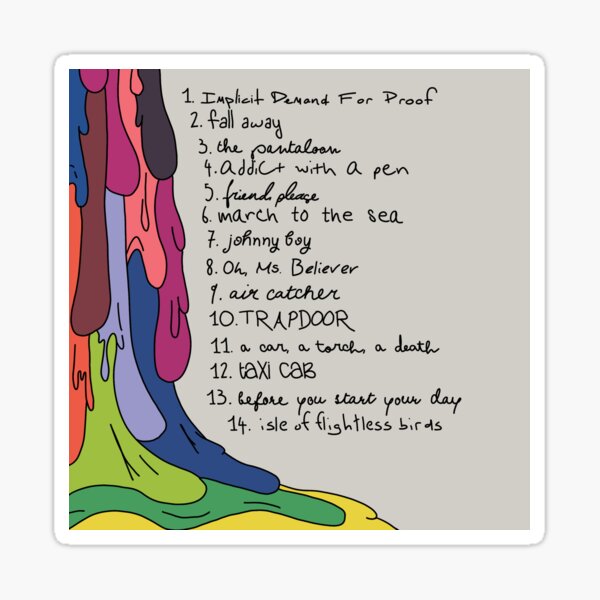 1. Implicit Demand For Proof
2. fall away
3. the pantaloon
4. addict with a pen
5. friend, please
6. march to the sea
7. johnny boy
8. Oh, Ms. Believer
9. air catcher
10. TRAPDOOR
11. a car, a torch, a death
12. taxi cab
13. before you start your day
14. isle of flightless birds